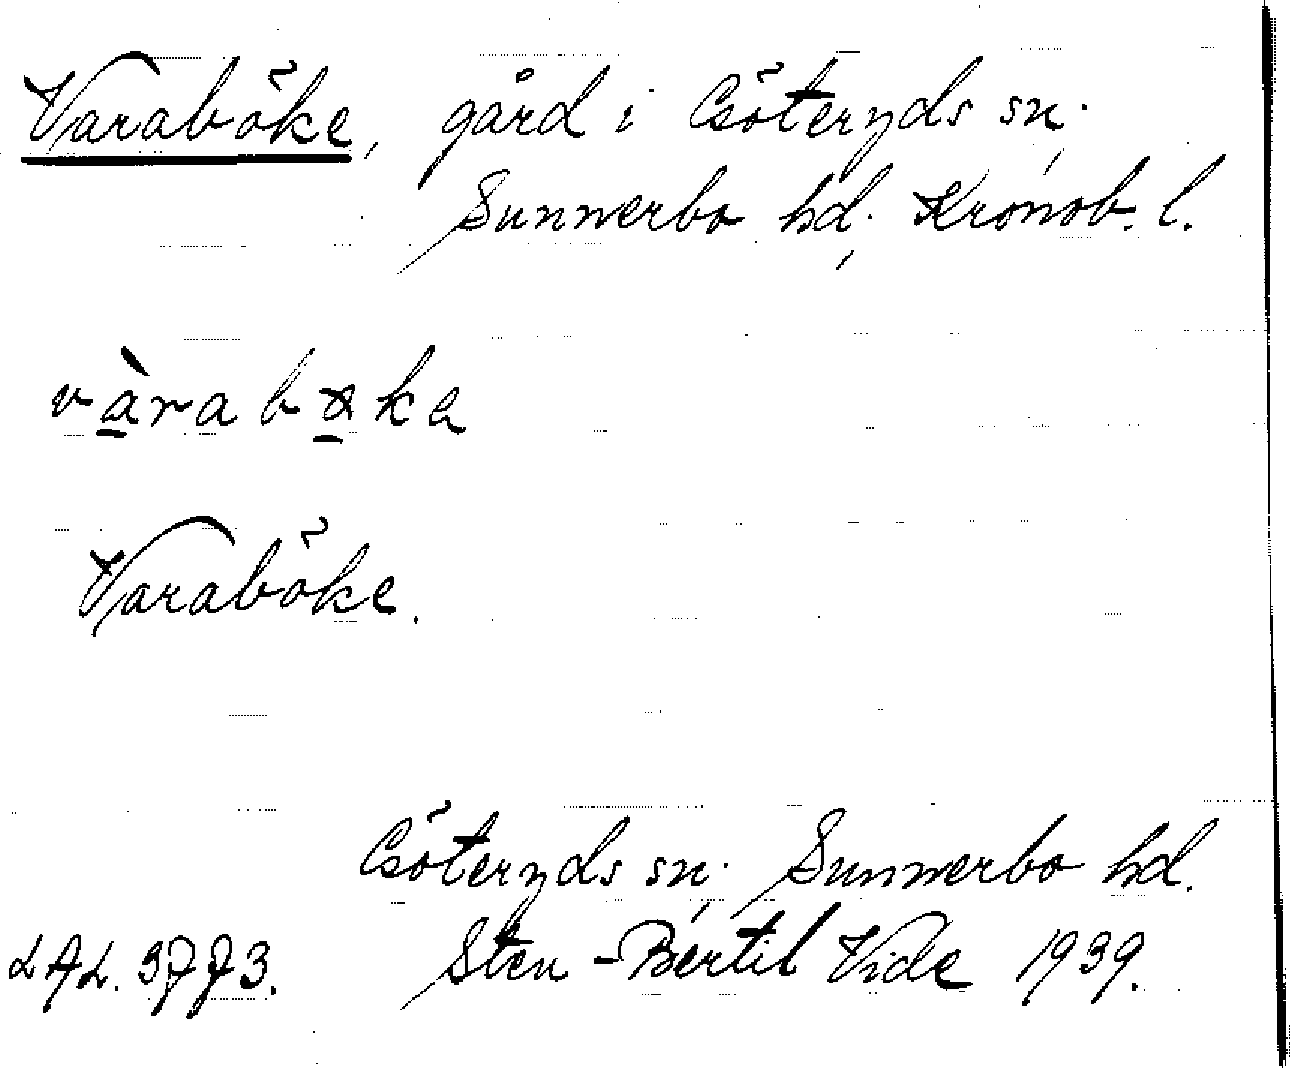 Varaböke, gård i Göteryds sn.
Sunnerbo hd. Kronob. l.
Varaböke.
Göteryds sn. Sunnerbo hd.
LAL. 3773. Sten-Bertil Vide 1939.